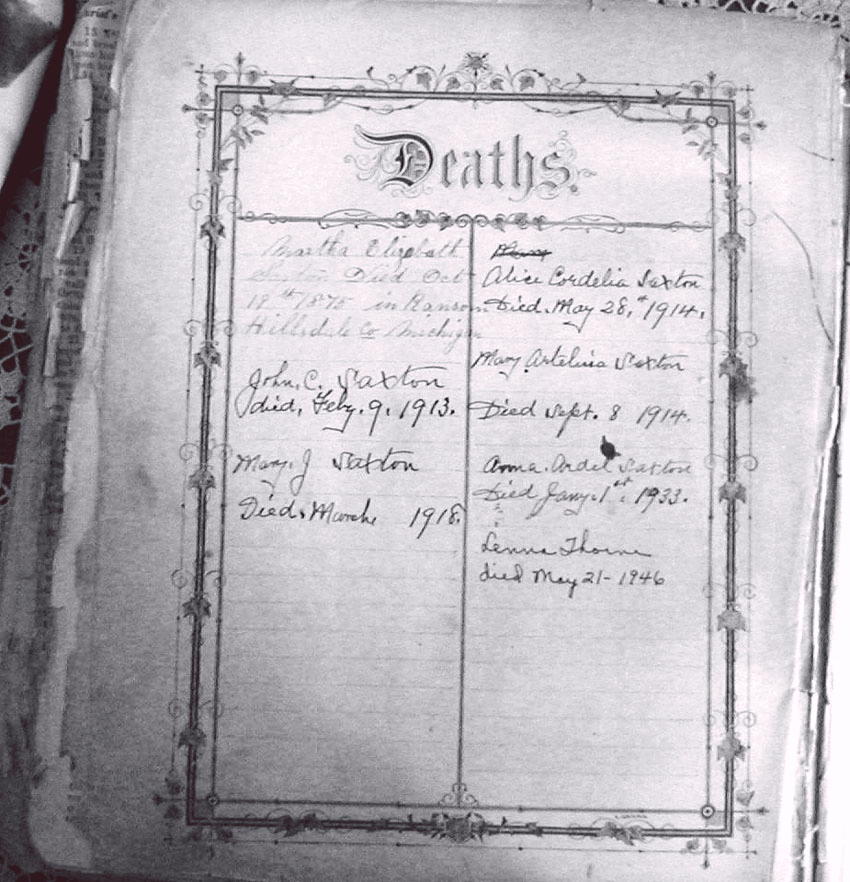 Deaths.
Martha Elizabeth
Saxton Died Oct
18th 1875 in Ransom
Hillsdale Co Michigan
John, C. Saxton
died, Feby. 9, 1913.
Mary. J Saxton
Died. Marche 1918.
Alice Cordelia Saxton
Died. May 28,st 1914.
Mary Artelisia Saxton
Died Sept. 8 1914.
Anna. Ardel Saxton
Died Jany. 1st. 1933.
Lenna Thorne
died May 21- 1946